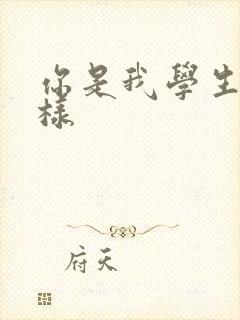 你是我學生
樣
府天